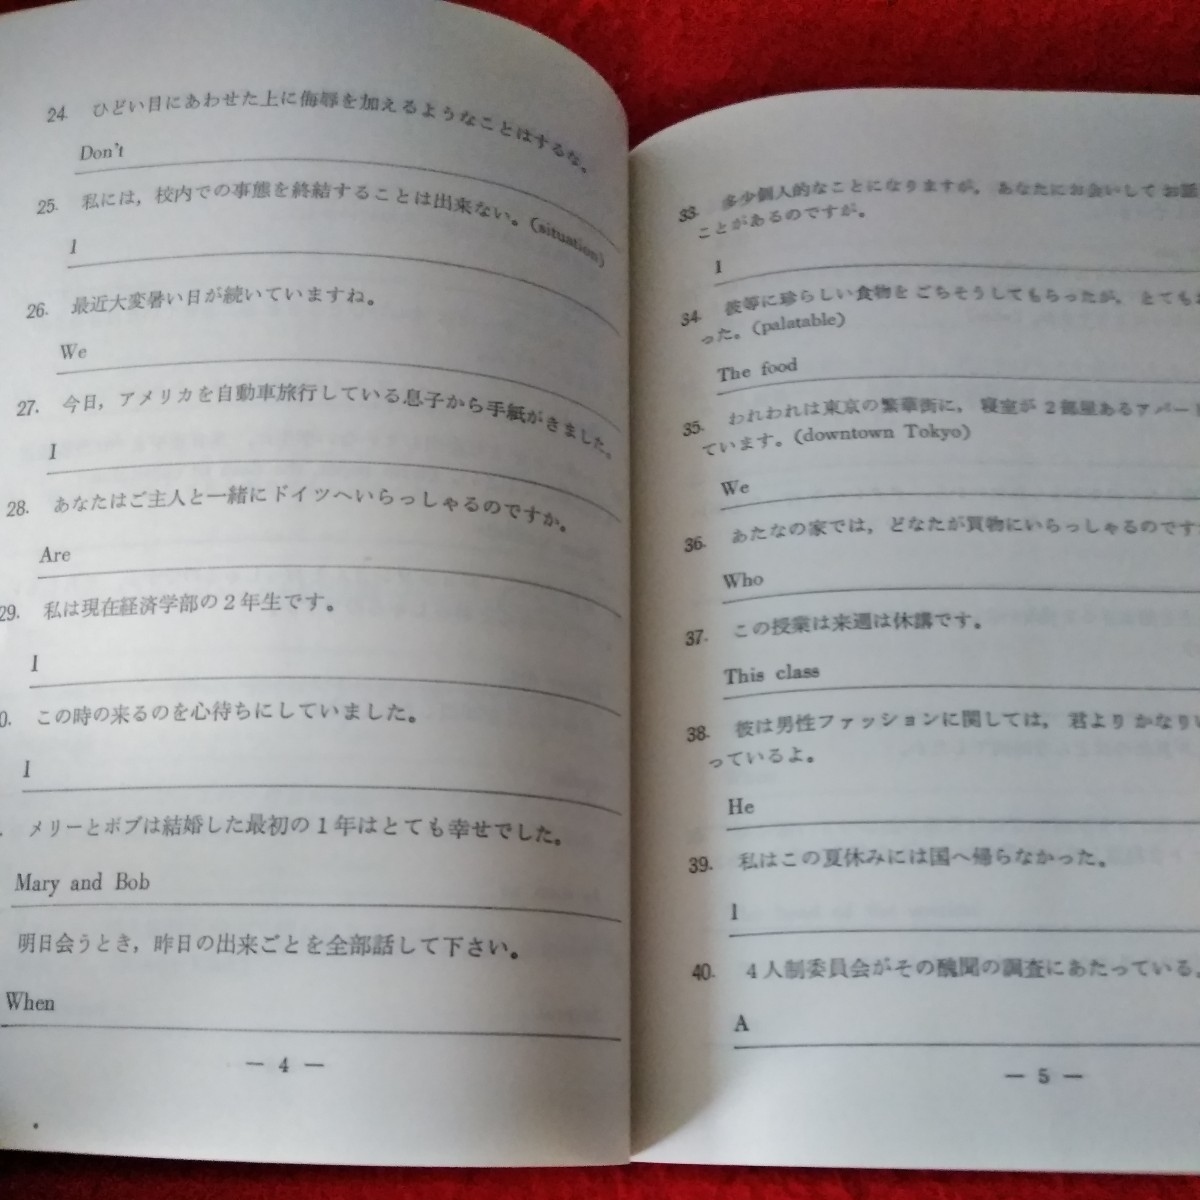 24. ひどい目にあわせた上に侮辱を加えるようなことはするな。
Don't
25. 私には，校内での事態を終結することは出来ない。(situation)
I
26. 最近大変暑い日が続いていますね。
We
27. 今日，アメリカを自動車旅行している息子から手紙がきました。
I
28. あなたはご主人と一緒にドイツへいらっしゃるのですか。
Are
29. 私は現在経済学部の2年生です。
I
0. この時の来るのを心待ちにしていました。
I
. メリーとボブは結婚した最初の1年はとても幸せでした。
Mary and Bob
明日会うとき，昨日の出来ごとを全部話して下さい。
When
— 4 —
33. 多少個人的なことになりますが，あなたにお会いしてお話
ことがあるのですが。
I
34. 彼等に珍らしい食物をごちそうしてもらったが，とても
った。(palatable)
The food
35. われわれは東京の繁華街に，寝室が2部屋あるアパー
ています。(downtown Tokyo)
We
36. あたなの家では，どなたが買物にいらっしゃるのです
Who
37. この授業は来週は休講です。
This class
38. 彼は男性ファッションに関しては，君よりかなり
っているよ。
He
39. 私はこの夏休みには国へ帰らなかった。
I
40. 4人制委員会がその醜聞の調査にあたっている。
A
— 5 —